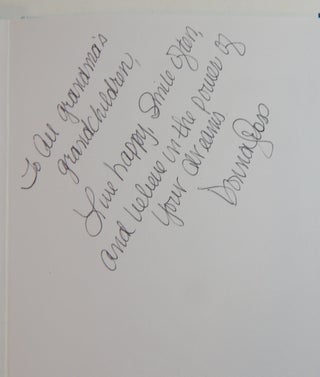 To all grandma's
grandchildren,
Live happy, Smile often,
and believe in the power of
your dreams
Donna Goss